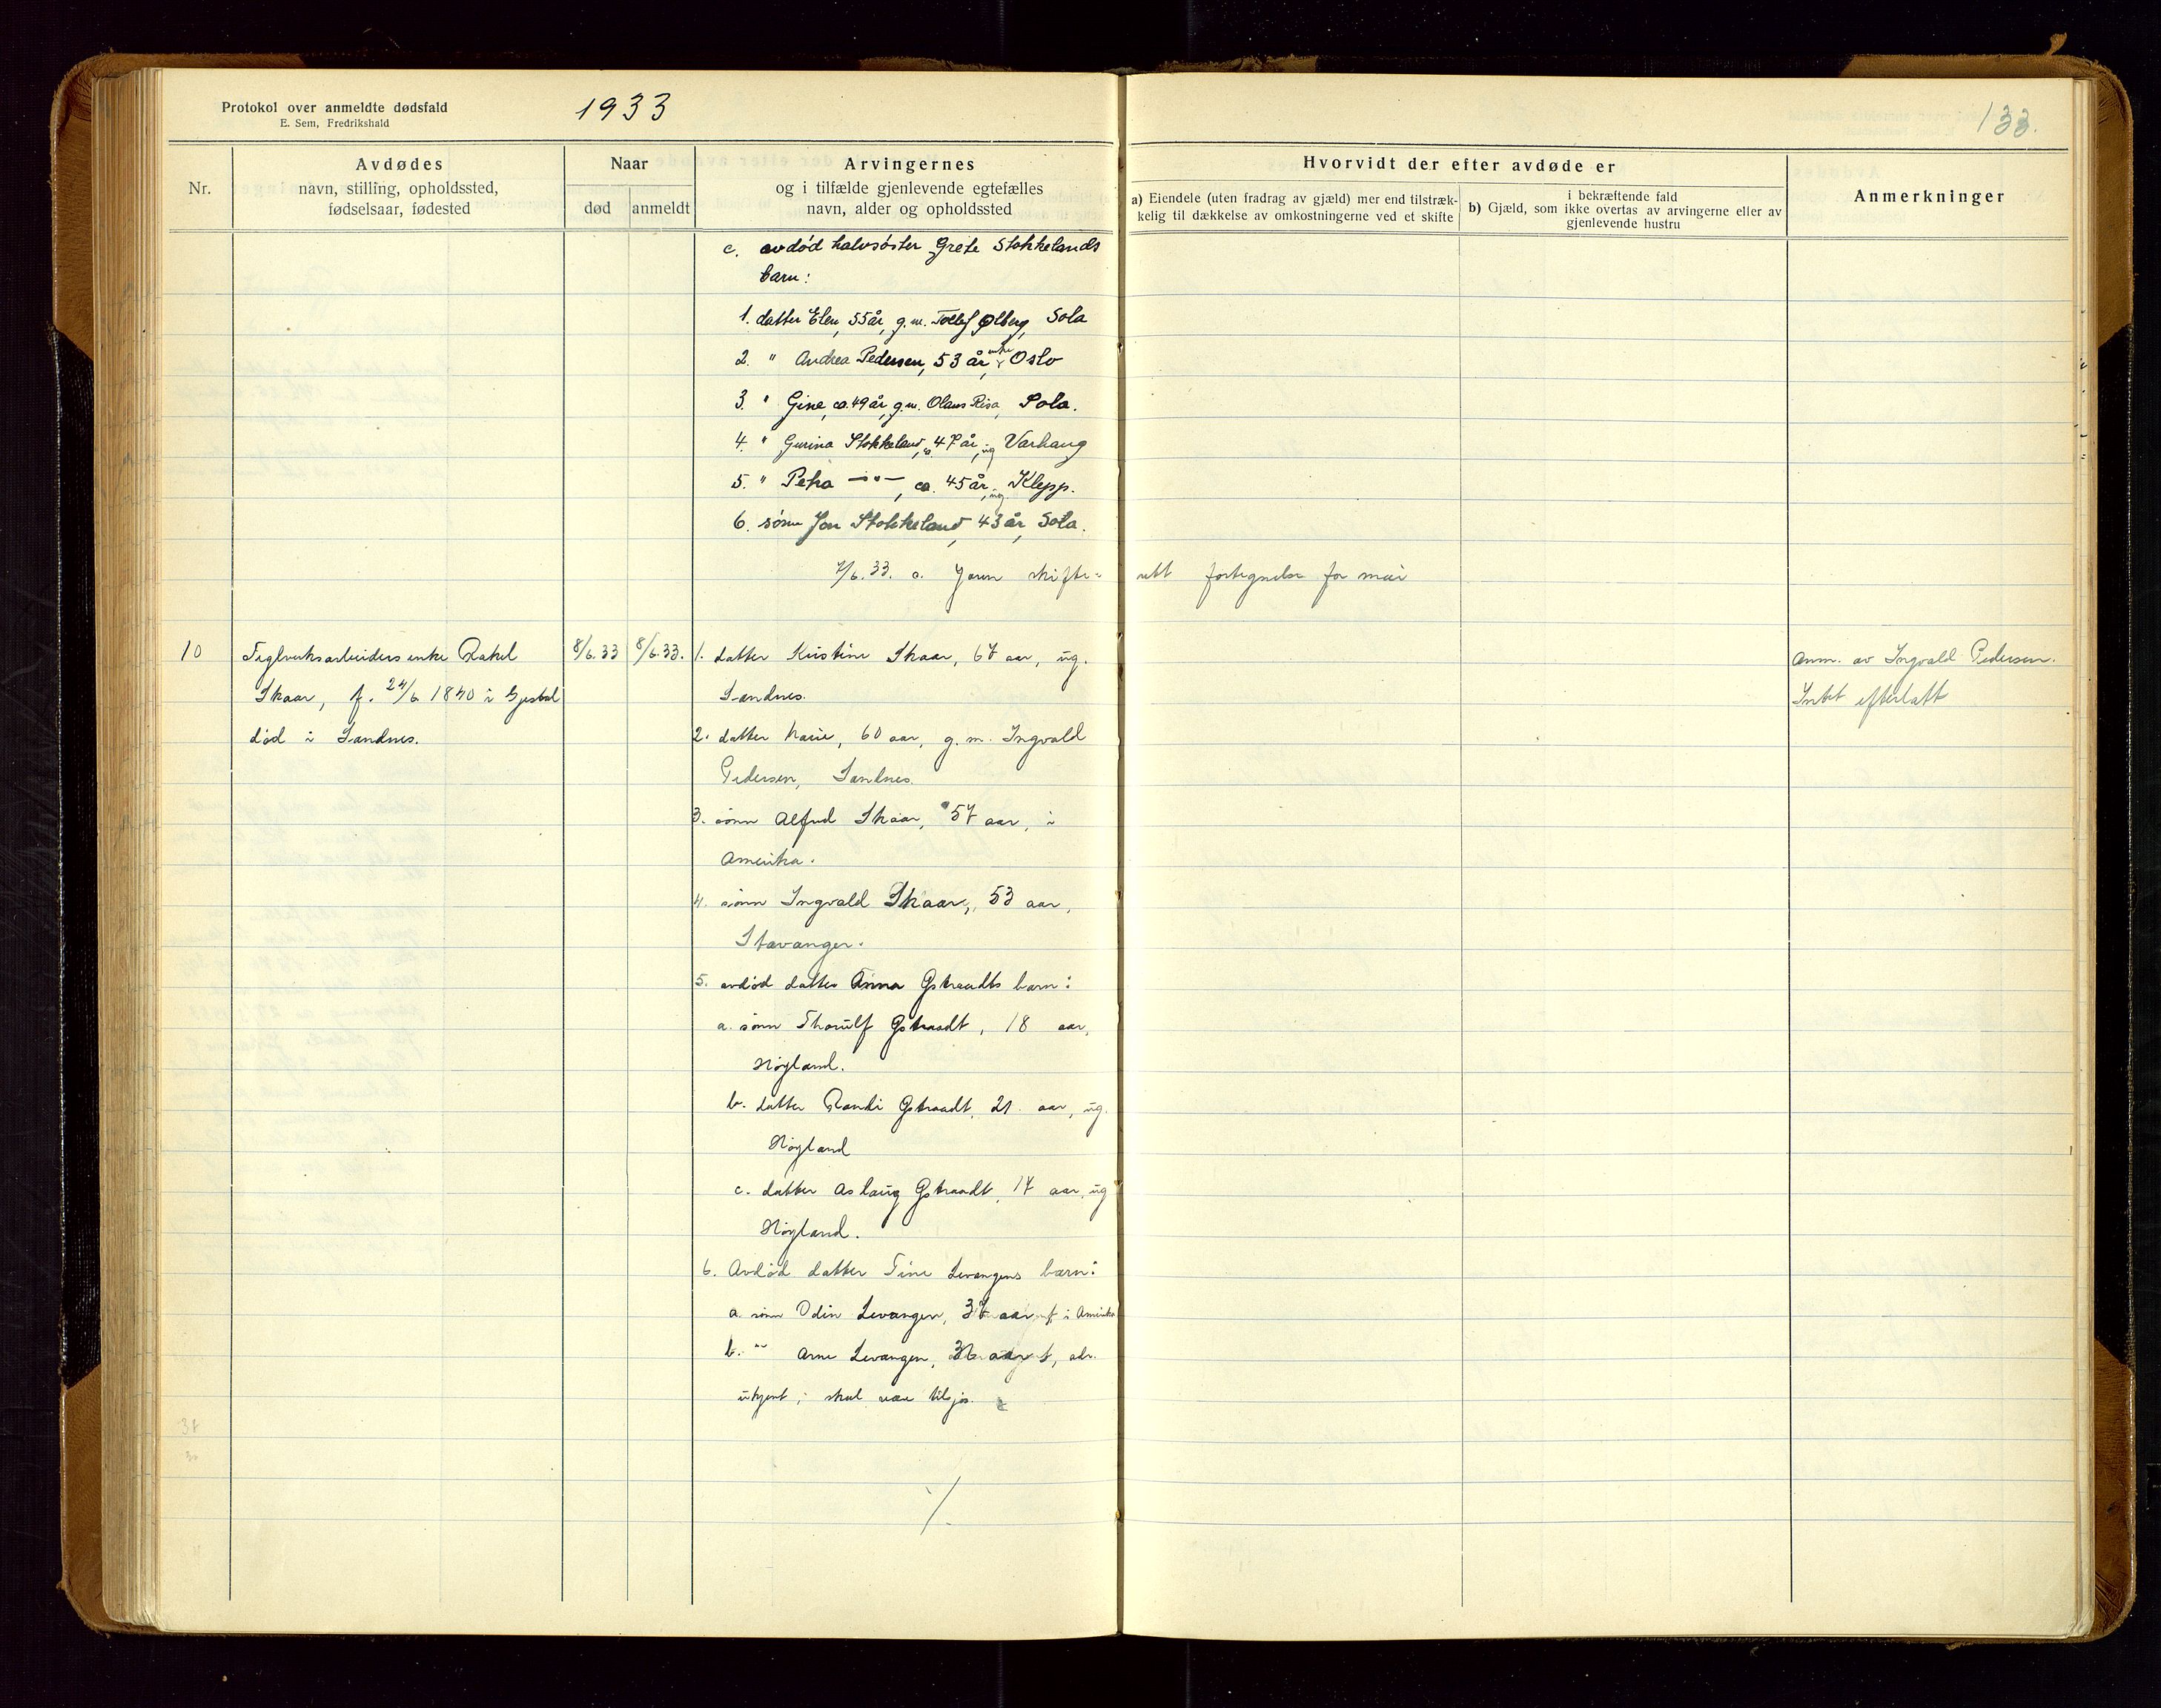 Protokol over anmeldte dødsfald
E. Sem, Fredrikshald
1933
133.
Nr.
Avdødes
navn, stilling, opholdssted,
fødselsaar, fødested
Naar
død
anmeldt
Arvingernes
og i tilfælde gjenlevende egtefælles
navn, alder og opholdssted
Hvorvidt der efter avdøde er
a) Eiendele (uten fradrag av gjæld) mer end tilstræk-
kelig til dækkelse av omkostningerne ved et skifte
i bekræftende fald
b) Gjæld, som ikke overtas av arvingerne eller av
gjenlevende hustru
Anmerkninger
c. avdød halvsøster Grete Stokkelands
barn:
1. datter Elen, 55 år, g.m. Tollef Ølberg, Sola
2. " Andrea Pedersen, 53 år, enke, Oslo
3. " Gine, ca. 49 år, g.m. Olaus Risa, Sola.
4. " Gurina Stokkeland, ca. 47 år, ug. Varhaug
5. " Petra —"—, ca. 45 år, ug. Klepp.
6. sønn Jon Stokkeland, 43 år, Sola.
7/6.33. s. Jæren skifte- rett fortegnelse for mai
10
Teglverksarbeiders enke Rakel
Skaar, f. 24/6 1840 i Gjestal
død i Sandnes.
8/6.33
8/6.33.
1. datter Kristine Skaar, 67 aar, ug.
Sandnes.
2. datter Marie, 60 aar, g.m. Ingvald
Pedersen, Sandnes.
3. sønn Alfred Skaar, 57 aar, i
Amerika.
4. sønn Ingvald Skaar, 53 aar,
Stavanger.
5. avdød datter Anna Gstraadts barn:
a. sønn Thorulf Gstraadt, 18 aar,
Høyland.
b. datter Randi Gstraadt, 21 aar, ug.
Høyland
c. datter Aslaug Gstraadt, 17 aar, ug
Høyland.
6. Avdød datter Tine Levangens barn:
a. sønn Odin Levangen, 37 aar, i Amerika
b. " Arne Levangen, aar, adr.
ukjent, skal være tilsjøs.
Anm. av Ingvald Pedersen.
Intet efterlatt
37
30